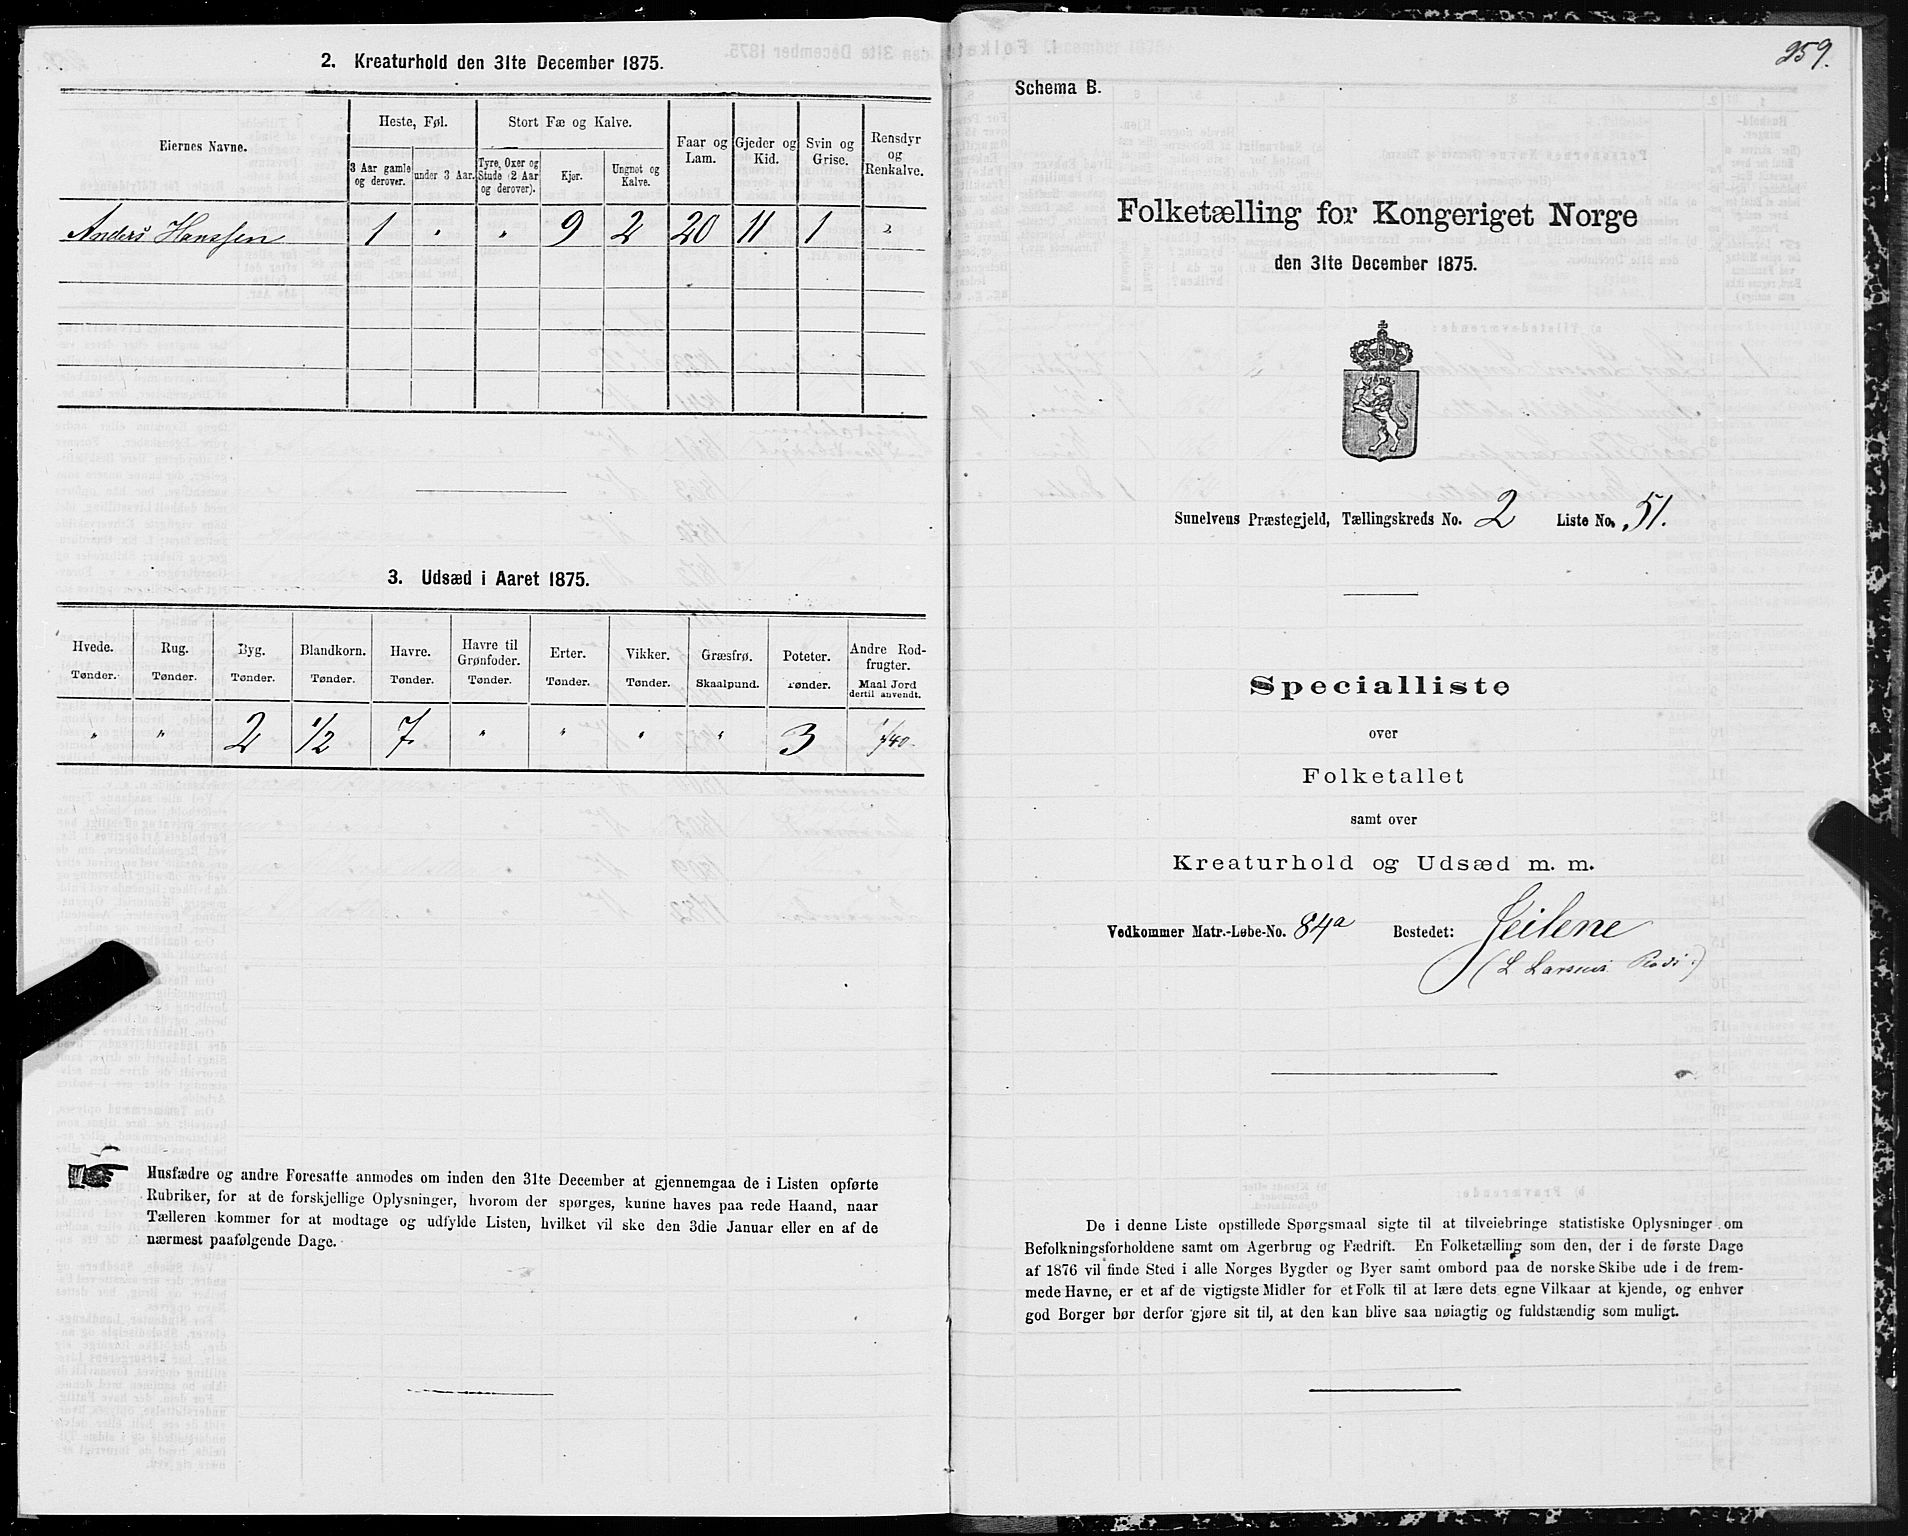 2. Kreaturhold den 31te December 1875.
Eiernes Navne.
Heste, Føl.
Stort Fæ og Kalve.
Faar og Lam.
Gjeder og Kid.
Svin og Grise.
Rensdyr og Renkalve.
3 Aar gamle og derover.
under 3 Aar.
Tyre, Oxer og Stude (2 Aar og derover).
Kjør.
Ungnøt og Kalve.
Anders Hanssen 1 " " 9 2 20 11 1 "
3. Udsæd i Aaret 1875.
Hvede. Rug. Byg. Blandkorn. Havre. Havre til Grønfoder. Erter. Vikker. Græsfrø. Poteter. Andre Rodfrugter.
Tønder. Tønder. Tønder. Tønder. Tønder. Tønder. Tønder. Tønder. Skaalpund. Tønder. Maal Jord dertil anvendt.
" " 2 1/2 7 " " " " 3 1/40
Husfædre og andre Foresatte anmodes om inden den 31te December at gjennemgaa de i Listen opførte
Rubriker, for at de forskjellige Oplysninger, hvorom der spørges, kunne haves paa rede Haand, naar
Tælleren kommer for at modtage og udfylde Listen, hvilket vil ske den 3die Januar eller en af de
nærmest paafølgende Dage.
259.
Schema B.
Folketælling for Kongeriget Norge
den 31te December 1875.
Sunelvens Præstegjeld, Tællingskreds No. 2 Liste No. 51.
Specialliste
over
Folketallet
samt over
Kreaturhold og Udsæd m. m.
Vedkommer Matr.-Løbe-No. 84a Bostedet: Jeilene
(L Larsens )
De i denne Liste opstillede Spørgsmaal sigte til at tilveiebringe statistiske Oplysninger om
Befolkningsforholdene samt om Agerbrug og Fædrift. En Folketælling som den, der i de første Dage
af 1876 vil finde Sted i alle Norges Bygder og Byer samt ombord paa de norske Skibe ude i de frem-
mede Havne, er et af de vigtigste Midler for et Folk til at lære dets egne Vilkaar at kjende, og enhver
god Borger bør derfor gjøre sit til, at den kan blive saa nøiagtig og fuldstændig som muligt.